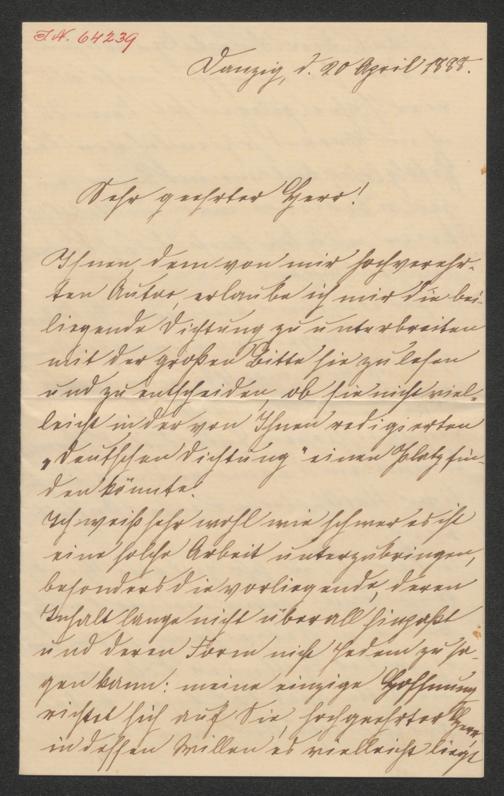 I.N. 64239
Danzig, d. 20 April 1888.
Sehr geehrter Herr!
Ihnen, dem von mir hochverehr-
ten Autor, erlaube ich mir die bei-
liegende Dichtung zu unterbreiten
mit der großen Bitte sie zu lesen
und zu entscheiden, ob sie nicht viel-
leicht in der von Ihnen redigierten
„Deutschen Dichtung" einen Platz fin-
den könnte.
Ich weiß sehr wohl wie schwer es ist
eine solche Arbeit unterzubringen,
besonders die vorliegende, deren
Inhalt lange nicht überall hinpaßt
und deren Form nicht Jedem zusa-
gen kann: meine einzige Hoffnung
richtet sich auf Sie, hochgeehrter Herr,
in dessen Willen es vielleicht liegt